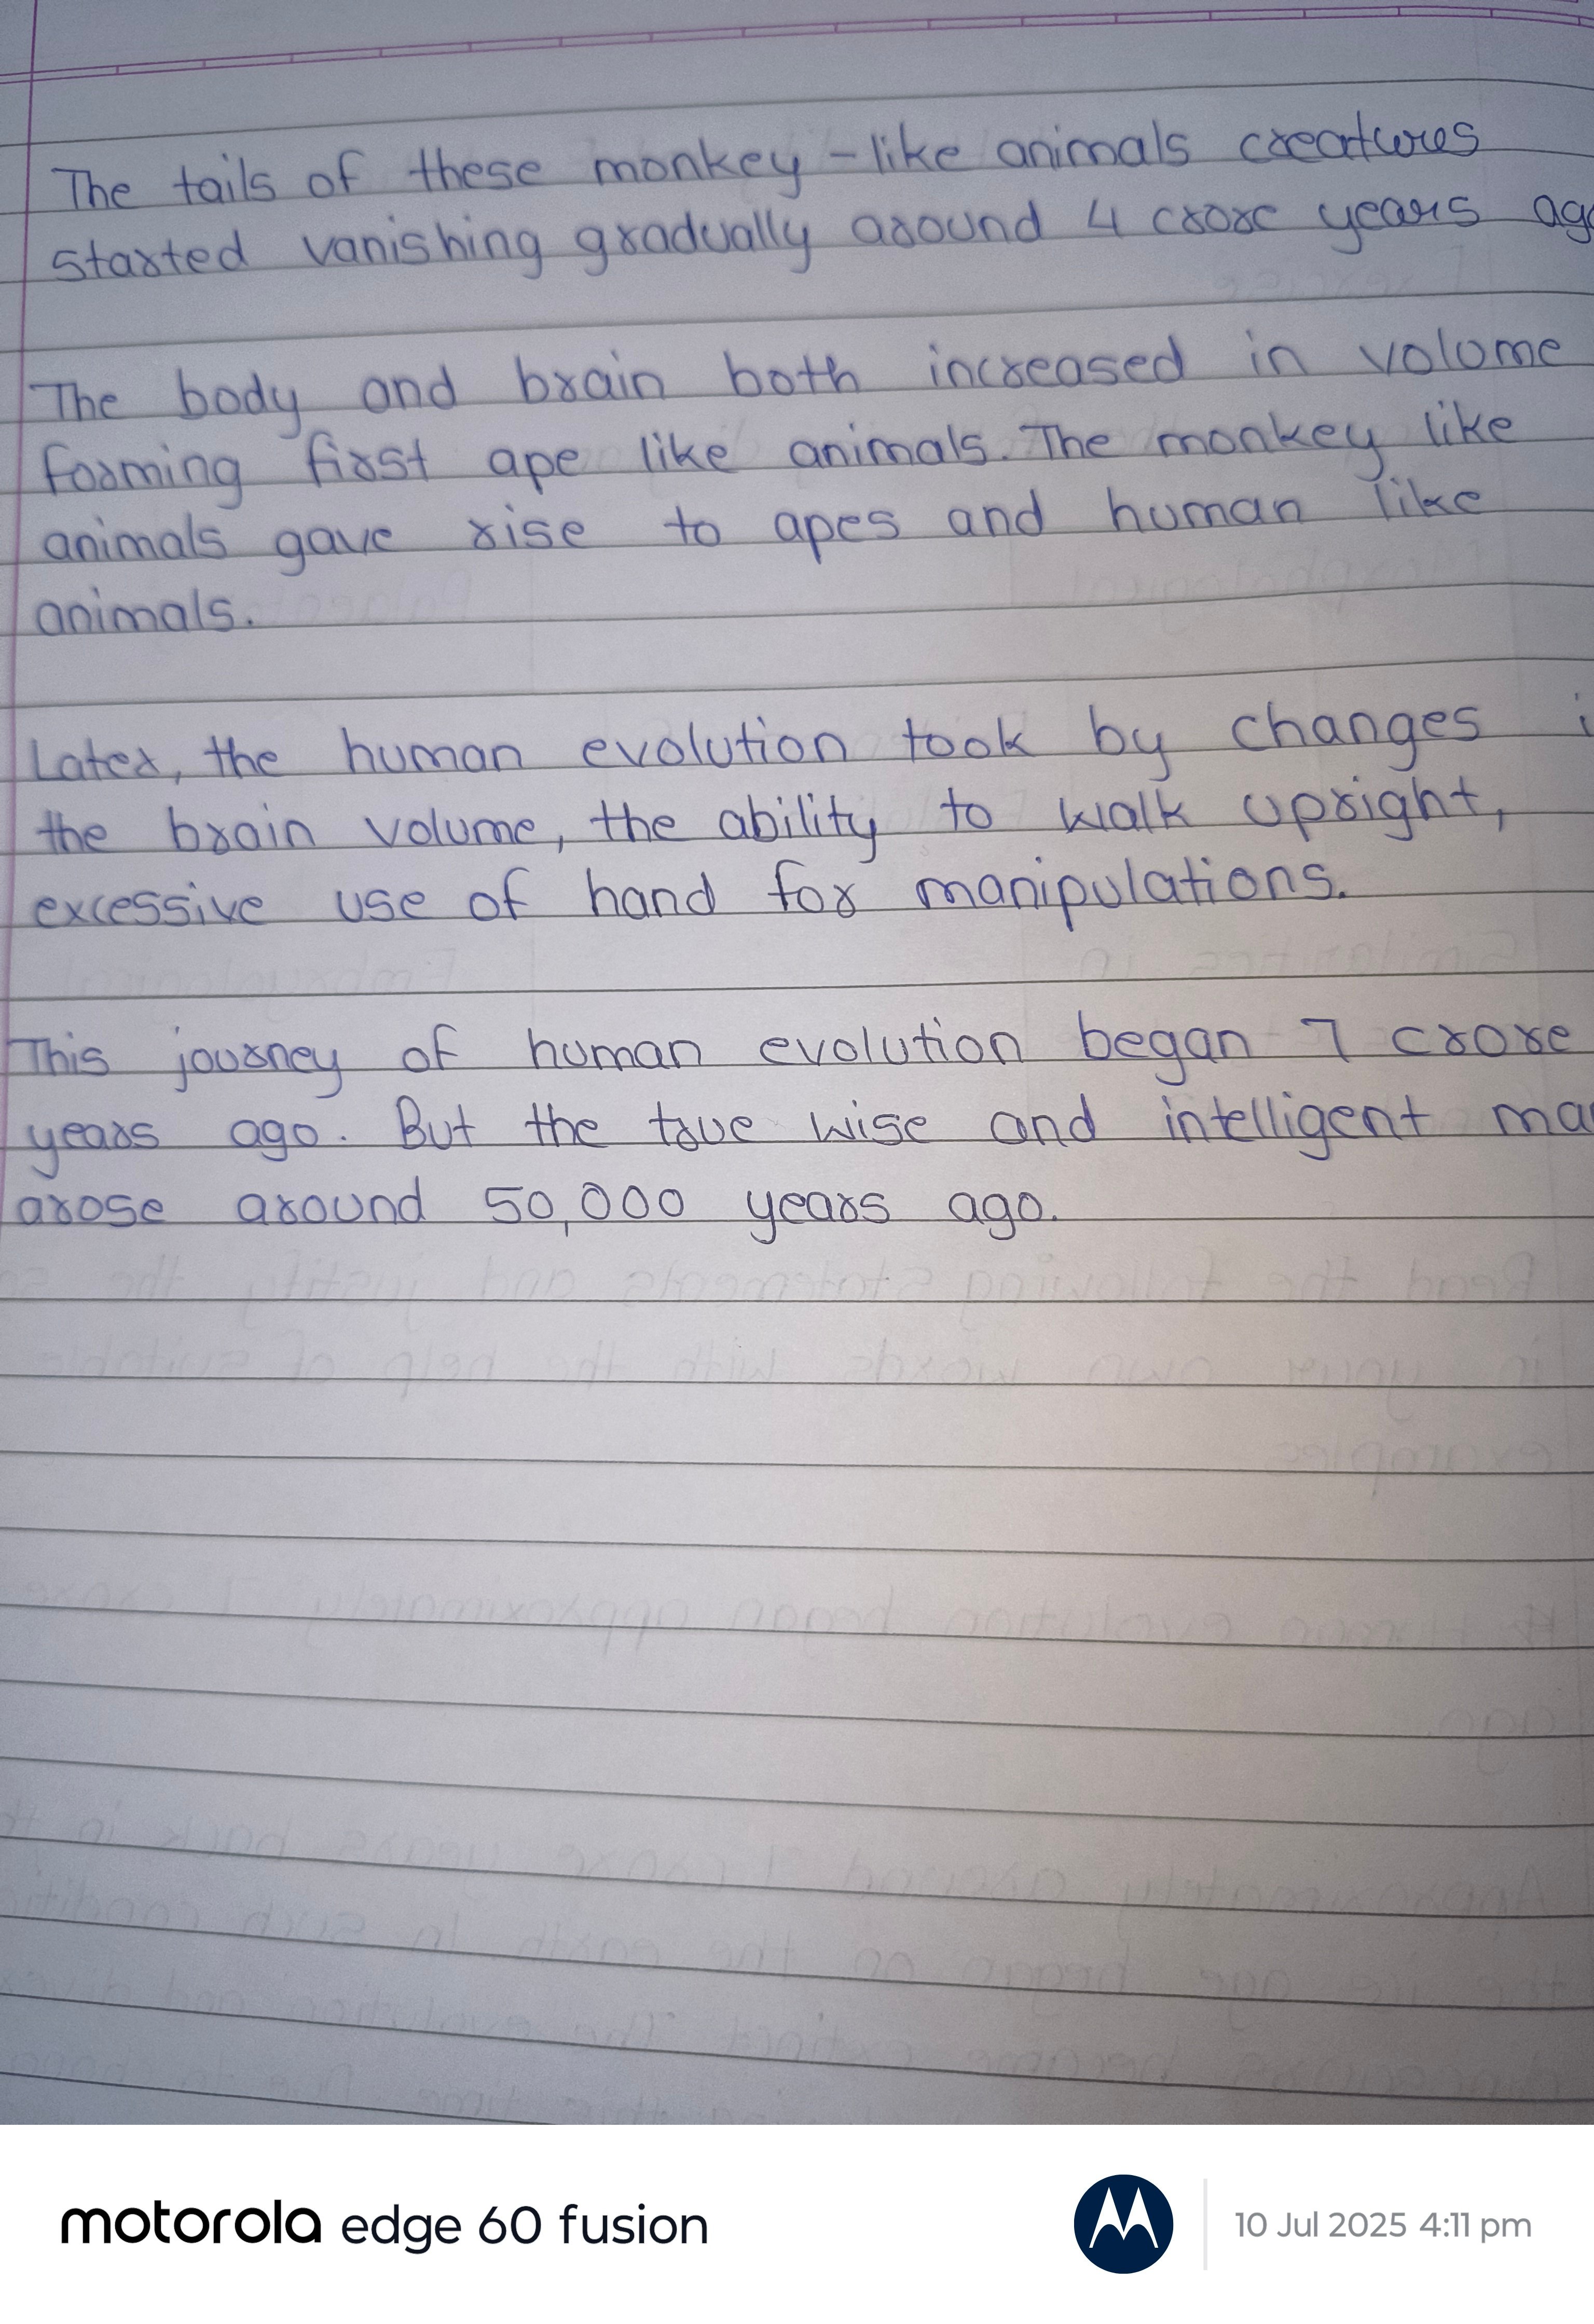 The tails of these monkey-like animals creatures
started vanishing gradually around 4 crore years ago
The body and brain both increased in volome
forming first ape like animals. The monkey like
animals gave rise to apes and human like
animals.
Later, the human evolution took by changes i
the brain volume, the ability to walk upright,
excessive use of hand for manipulations.
This journey of human evolution began 7 crore
years ago. But the true wise and intelligent ma
arose around 50,000 years ago.
motorola edge 60 fusion
10 Jul 2025 4:11 pm